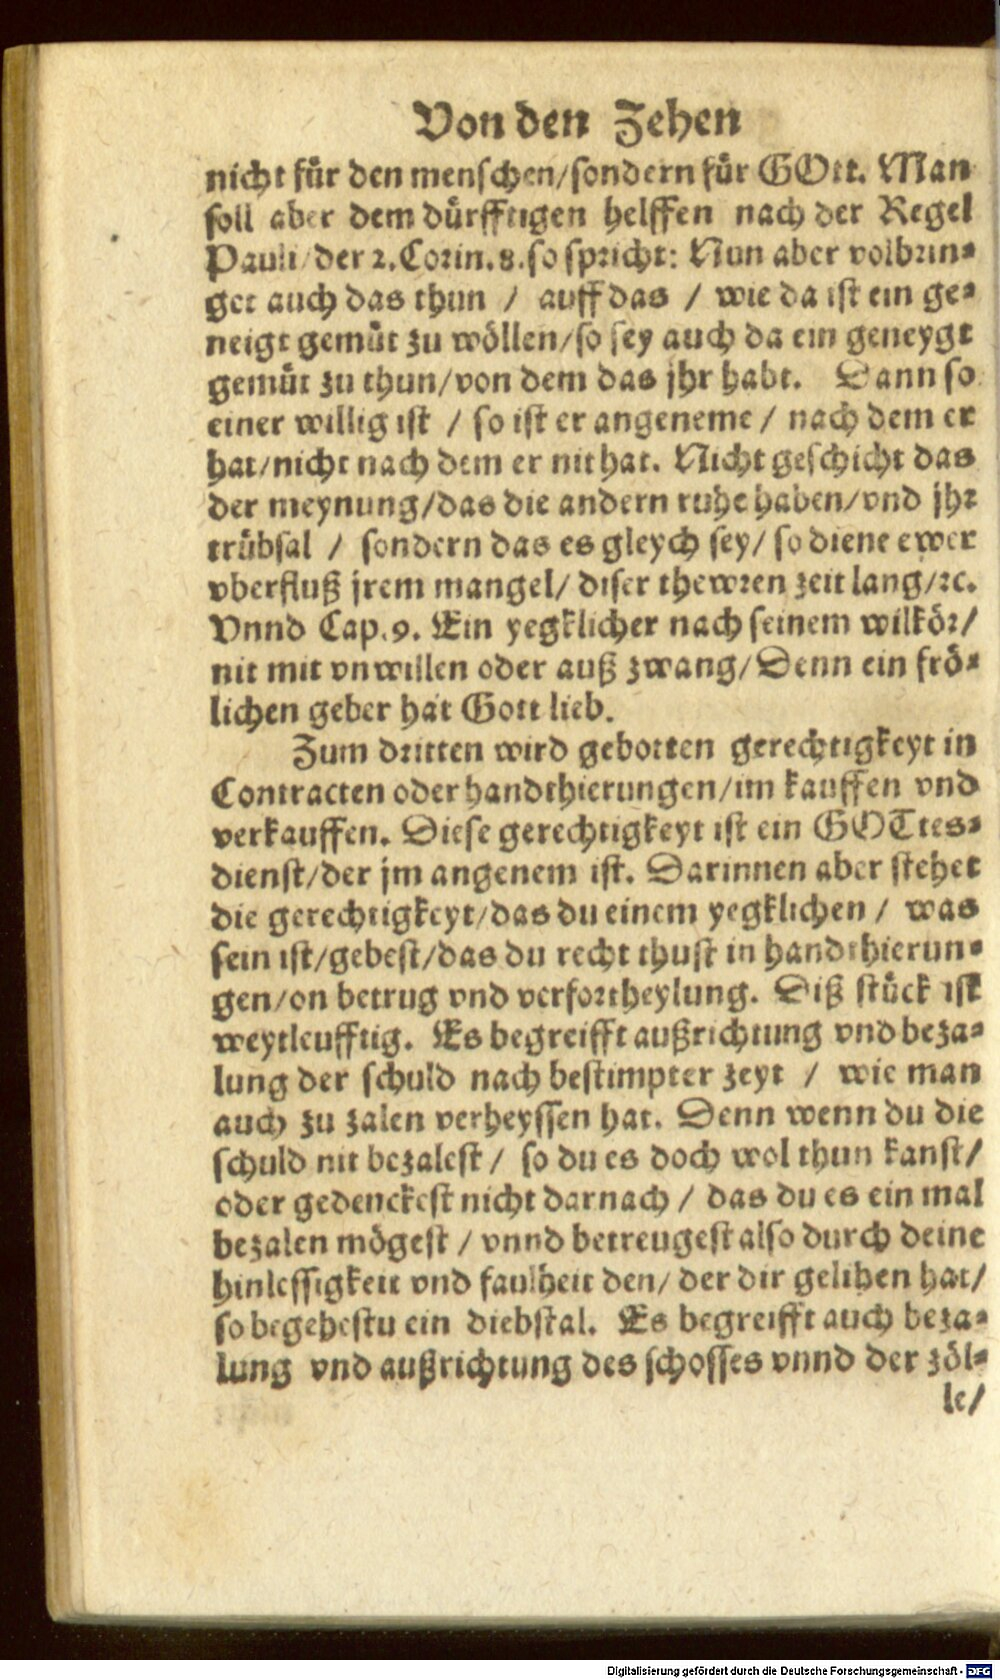 Von den Zehen
nicht für den menschen/sondern für GOtt. Man
soll aber dem dürfftigen helffen nach der Regel
Pauli/der 2.Corin.8.so spricht: Nun aber volbrin-
get auch das thun / auff das / wie da ist ein ge-
neigt gemüt zu wöllen/so sey auch da ein geneygt
gemüt zu thun/von dem das jhr habt. Dann so
einer willig ist / so ist er angeneme / nach dem er
hat/nicht nach dem er nit hat. Nicht geschicht das
der meynung/das die andern ruhe haben/vnd jhr
trübsal / sondern das es gleych sey/ so diene ewer
vberfluß jrem mangel/ diser thewren zeit lang/ꝛc.
Vnnd Cap.9. Ein yegklicher nach seinem wilkör/
nit mit vnwillen oder auß zwang/Denn ein frö-
lichen geber hat Gott lieb.
Zum dritten wird gebotten gerechtigkeyt in
Contracten oder handthierungen/im kauffen vnd
verkauffen. Diese gerechtigkeyt ist ein GOTtes-
dienst/der jm angenem ist. Darinnen aber stehet
die gerechtigkeyt/das du einem yegklichen / was
sein ist/gebest/das du recht thust in handthierun-
gen/on betrug vnd verfortheylung. Diß stück ist
weytleufftig. Es begreifft außrichtung vnd beza-
lung der schuld nach bestimpter zeyt / wie man
auch zu zalen verheyssen hat. Denn wenn du die
schuld nit bezalest / so du es doch wol thun kanst/
oder gedenckest nicht darnach / das du es ein mal
bezalen mögest / vnnd betreugest also durch deine
hinlessigkeit vnd faulheit den/ der dir gelihen hat/
so begehestu ein diebstal. Es begreifft auch beza-
lung vnd außrichtung des schosses vnnd der zöl-
le/
Digitalisierung gefördert durch die Deutsche Forschungsgemeinschaft - DFG